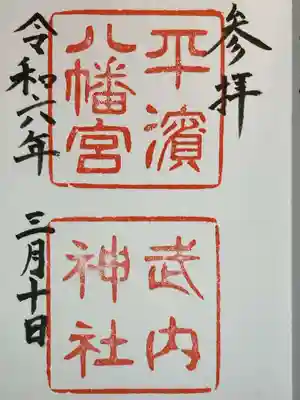 参拝
平濱
八幡宮
武内
神社
令和六年
三月十日